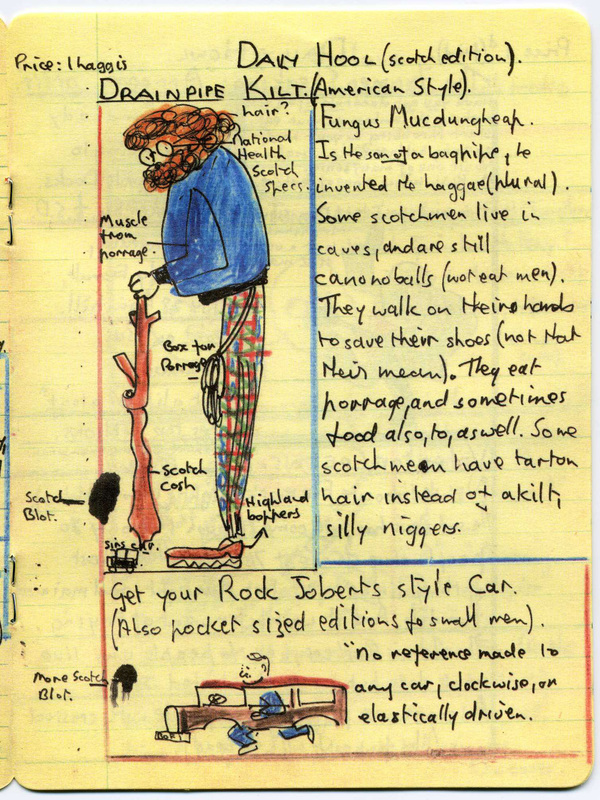 Price: 1 haggis
DAILY HOOL (scotch edition).
DRAINPIPE KILT. (American Style).
hair?
National
Health
Scotch
Specs.
Muscle
from
porrage.
Box for
Porrage
Scotch
Cosh
Scotch
Blot.
Highland
boppers
Fungus Mucdungheap.
Is the son of a bagpipe, he
invented the haggae (plural).
Some scotchmen live in
caves, and are still
canonoballs (wot eat men).
They walk on theire hands
to save their shoes (not that
theis mean). They eat
porrage, and sometimes
food also, to, as well. Some
scotchmen have tartan
hair instead of a kilt,
silly niggers.
Get your Rock Joberts style Car.
(Also pocket sized editions fo small men).
"no reference made to
any car, clockwise, or
elastically driven.
More Scotch
Blot.